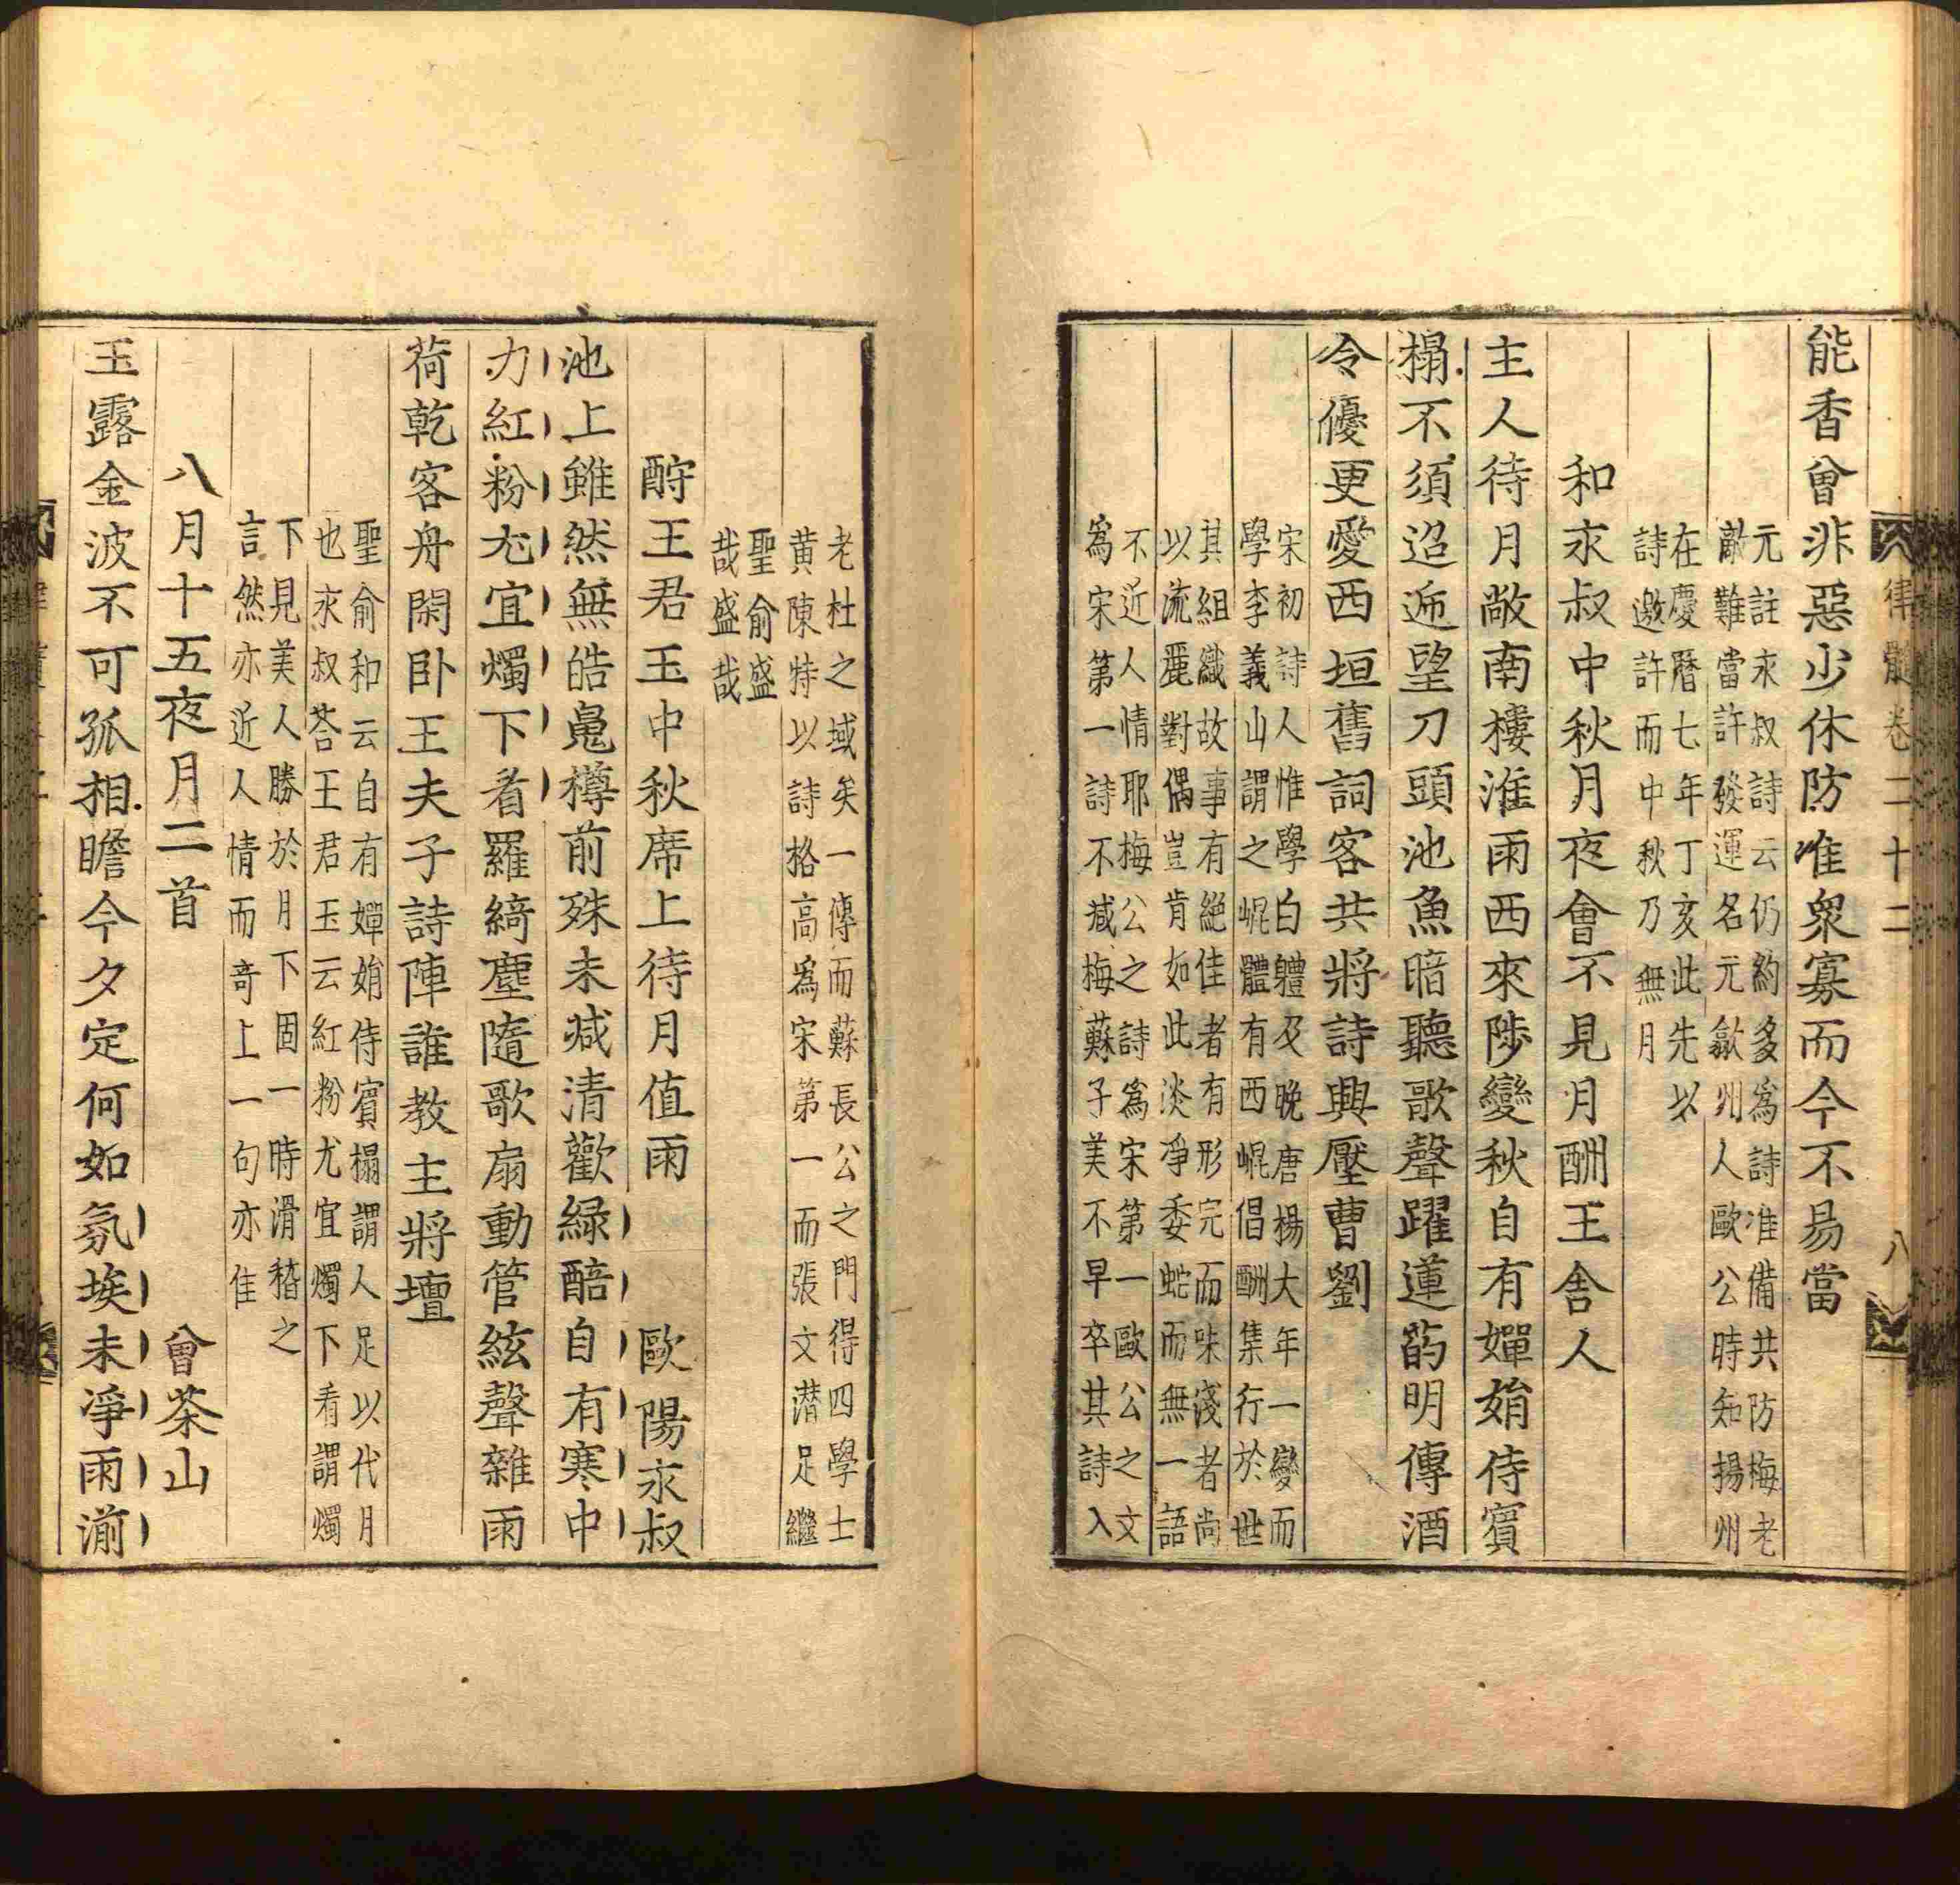 律髓卷二十二
八
能香曾非惡少休防惟衆寡而今不易當
元註永叔詩云仍約多爲詩准備共防梅老
敵難當許發運名元歙州人歐公時知揚州
在慶曆七年丁亥此先以
詩邀許而中秋乃無月
和永叔中秋月夜會不見月酬王舍人
主人待月敞南樓淮雨西來陟變秋自有嬋娟侍賓
榻不須迢遞望刀頭池魚暗聽歌聲躍蓮菂明傳酒
令優更愛西垣舊詞客共將詩興壓曹劉
宋初詩人惟學白軆及晚唐楊大年一變而
學李義山謂之崐體有西崐倡酬集行於世
其組織故事有絕佳者有形完而味淺者尚
以流麗對偶豈肯如此淡凈委蛇而無一語
不近人情耶梅公之詩爲宋第一歐公之文
爲宋第一詩不减梅蘇子美不早卒其詩入
老杜之域矣一傳而蘇長公之門得四學士
黄陳特以詩格高爲宋第一而張文潜足繼
聖俞盛
哉盛哉
酧王君玉中秋席上待月值雨
歐陽永叔
池上雖然無皓鬼樽前殊未减清歡緑醅自有寒中
力紅粉尢宜燭下看羅綺塵隨歌扇動管絃聲雜雨
荷乾客舟閑卧王夫子詩陣誰教主將壇
聖俞和云自有嬋娟侍賓榻謂人足以代月
也永叔荅王君玉云紅粉尤宜燭下看謂燭
下見美人勝於月下固一時滑稽之
言然亦近人情而竒上一句亦佳
八月十五夜月二首
曾茶山
玉露金波不可孤相瞻今夕定何如氛埃未凈雨湔